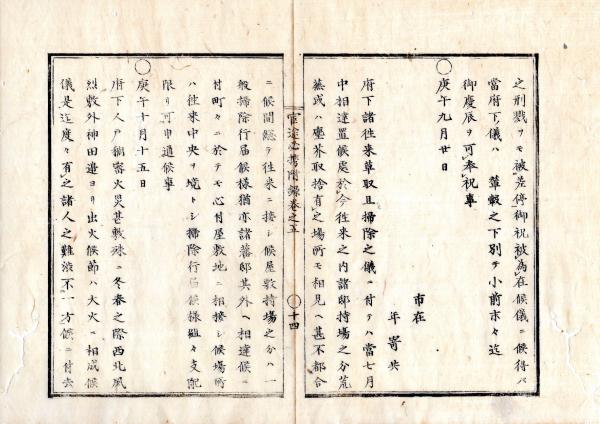 之刑戮ヲモ被差停御祝被為在候儀ニ候得バ
當府下儀ハ 輦轂之下別テ小前末々迄
御慶辰ヲ可奉祝事
○庚午九月廿日
市在
年寄共
府下諸往来草取且掃除之儀ニ付テハ當七月
中相達置候處於今往来之内諸邸持場之分荒
蕪或ハ塵芥取捨有之場所モ相見ヘ甚不都合
官途必携附録巻之五
○十四
ニ候間總テ往来ニ接シ候屋敷持場之分ハ一
般掃除行届候様猶亦諸藩邸其外ヘ相達候ニ
付町々ニ於テモ心付屋敷地ニ相接シ候場所
ハ往来中央ヲ境トシ掃除行届候様組々支配
限リ可申通候事
○庚午十月十五日
府下人戸稠密火災甚敷殊ニ冬春之際西北風
烈敷外神田邉ヨリ出火候節ハ大火ニ相成候
儀是迄度々有之諸人之難渋不一方候ニ付去